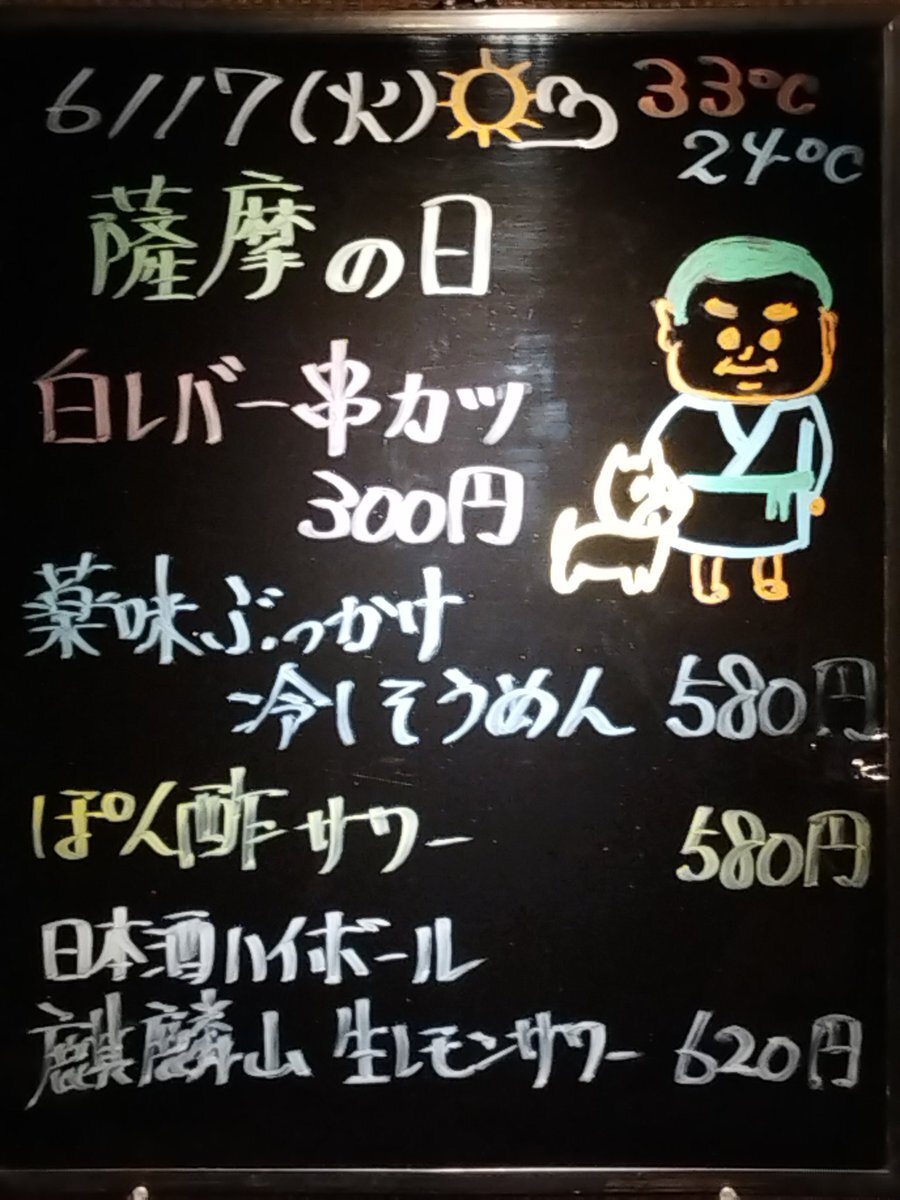 6/17(火) 33℃
24℃
薩摩の日
白レバー串カツ
300円
薬味ぶっかけ
冷しそうめん 580円
ぽん酢サワー 580円
日本酒ハイボール
麒麟山 生レモンサワー 620円